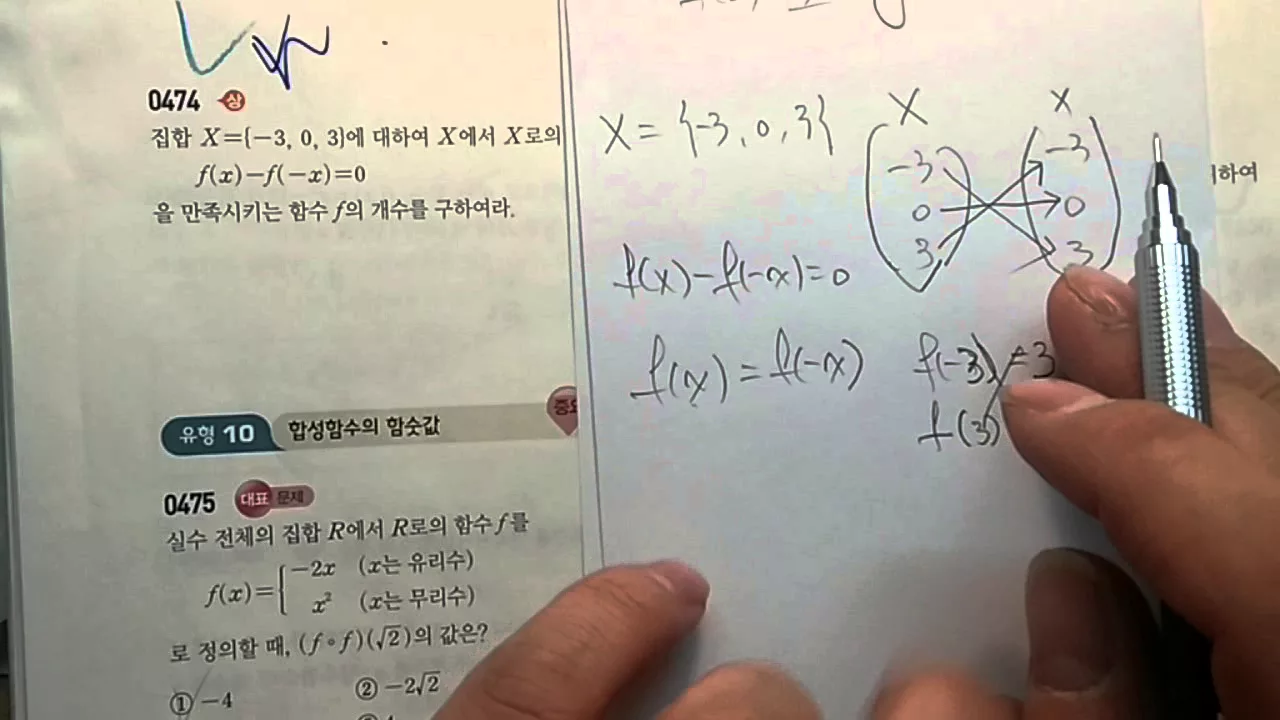 0474 상
집합 X={-3, 0, 3}에 대하여 X에서 X로의
f(x)-f(-x)=0
을 만족시키는 함수 f의 개수를 구하여라.
유형 10 합성함수의 함숫값
중요
0475 대표 문제
실수 전체의 집합 R에서 R로의 함수 f를
f(x)={-2x (x는 유리수)
x² (x는 무리수)
로 정의할 때, (f∘f)(√2)의 값은?
① -4 ② -2√2
X = {-3, 0, 3}
X X
-3 -3
0 0
3 3
f(x)-f(-x)=0
f(x)=f(-x)
f(-3)=3
f(3)
하여